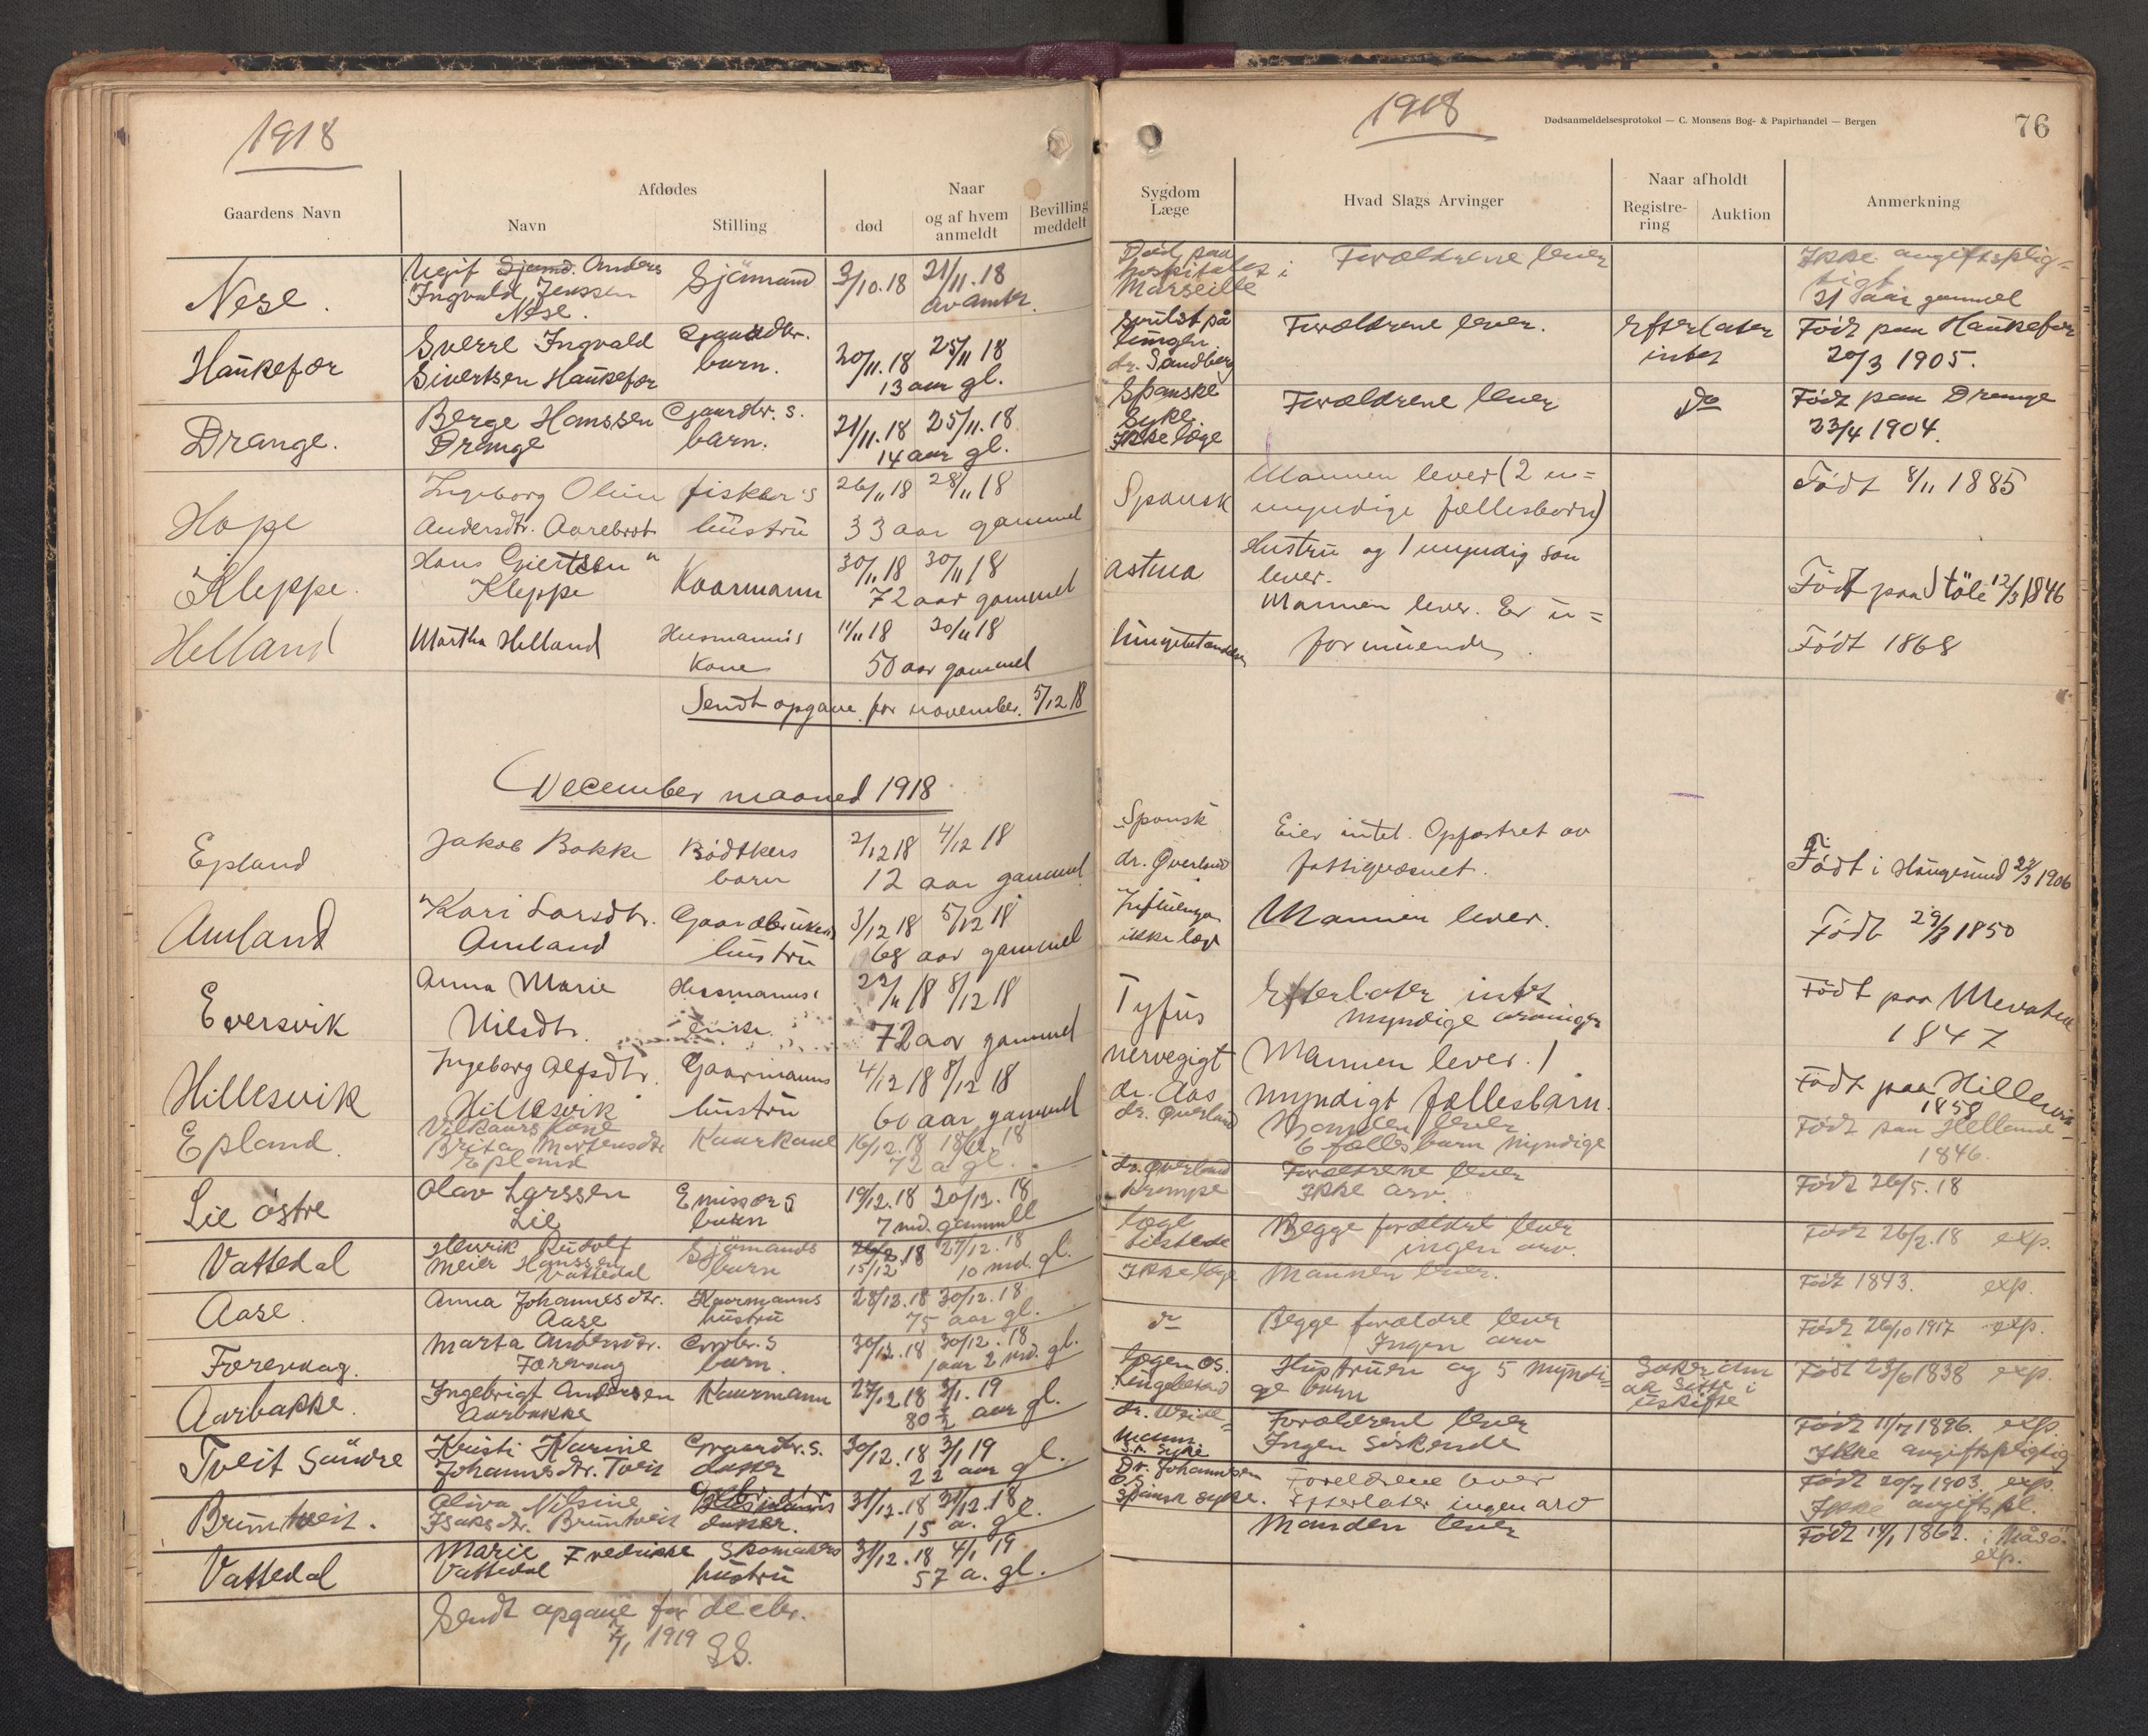 1918
Gaardens Navn
Afdødes
Navn
Stilling
død
Naar
og af hvem
anmeldt
Bevilling
meddelt
Nese.
Ugift Sjømd. Anders
Ingvald Jenssen
Nese.
Sjömand
3/10.18 21/11.18
av amtet
Haukefær
Sverre Ingvald
Sivertsen Haukefær
Gaardbr.
barn.
20/11.18 25/11 18
13 aar gl.
Drange.
Berge Hanssen
Drange
Gaardbr. s.
barn.
21/11.18 25/11.18
14 aar gl.
Hope
Ingeborg Oline
Andersdtr. Aarebrot
fisker's
hustru
26/11 18 28/11 18
33 aar gammel
Kleppe.
Hans Giertsen
Kleppe
Kaarmann
30/11 18 30/11 18
72 aar gammel
Helland
Martha Helland
Husmannis
Kone
11/11 18 30/11 18
50 aar gammel
Sendt opgave for november. 5/12 18
December maaned 1918
Epland
Jakob Bakke
Bödtkers
barn
2/12 18 4/12 18
12 aar gammel
Amland
Kari Larsdtr.
Amland
Gaardbrukers
hustru
3/12 18 5/12 18
68 aar gammel
Eversvik
Anna Marie
Nilsdtr.
Husmanns
enke
22/11 18 8/12 18
72 aar gammel
Hillesvik
Ingeborg Alfsdtr.
Hillesvik
Gaarmanns
hustru
4/12 18 8/12 18
60 aar gammel
Epland.
Vilkaarskone
Brita Mortensdtr
Epland
Kaarkone
16/12.18 18/12.18
72 a gl.
Lie östre
Olav Larssen
Lie
Emissær s
barn
19/12.18 20/12.18
7 md. gammell
Vattedal
Henrik Rudolf
Meier Hanssen
Vattedal
Sjömands
barn
18 27/12.18
15/12 10 md. gl.
Aase.
Anna Johannesdtr.
Aase
Kaarmanns
hustru
28/12.18 30/12.18
75 aar gl.
Förevaag.
Marta Andersdtr.
Förevaag
Grdbr. s
barn.
30/12.18 30/12.18
1 aar 2 md. gl.
Aarbakke.
Ingebrigt Andersen
Aarbakke
Kaarmann
27/12 18 3/1.19
80 1/2 aar gl.
Tveit Söndre
Kristi Karine
Johannesdtr. Tveit
Gaardbr. s.
datter
30/12.18 3/1 19
22 aar gl.
Brimtveit.
Oliva Nilsine
Isaksdtr. Brimtveit
datter.
31/12.18 31/12.18
15 a. gl.
Vattedal
Marie Fredrikke
Vattedal
Skomakers
hustru
31/12.18 4/1 19
57 a. gl.
Sendt opgave for decbr.
7/1 1919 GS.
1918
Dødsanmeldelsesprotokol — C. Monsens Bog- & Papirhandel — Bergen
76
Sygdom
Læge
Hvad Slags Arvinger
Naar afholdt
Registre-
ring
Auktion
Anmerkning
Död paa
hospitalet i
Marseille
Forældrene lever
Ikke avgiftsplig=
tigt
21 aar gammel
svulst på
lungen
dr. Sandberg
Forældrene lever.
Efterlater
intet
Född paa Haukefær
20/3 1905.
Spanske
syke
Ikke læge
Forældrene lever
do
Född paa Drange
23/4 1904.
Spansk
Mannen lever (2 u=
myndige fællesbarn)
Födt 8/11 1885
astma
Hustru og 1 umyndig sön
lever.
Födt paa Stöle 12/3 1846
lungebetændelse
Mannen lever. Er u=
formuende.
Födt 1868
Spansk
dr. Qverland
Eier intet. Opfostret av
fattigvæsnet.
Födt i Haugesund 23/3 1906
Influenza
ikke læge
Mannen lever.
Födt 29/8 1850
Tyfus
Efterlater intet
myndige arvinger
Födt paa Mevatne
1847
nervegigt
dr. Aas
Mannen lever. 1
myndigt fællesbarn.
Födt paa Hillesvik
1858
dr. Qverland
Manden lever
6 fælles barn myndige
Födt paa Helland
1846.
dr. Qverland
Krampe
Forældrene lever
Ikke arv.
Födt 26/5.18
læge
tilstede
Begge forældre lever
ingen arv.
Födt 26/2.18 exp.
Ikke læge
Mannen lever.
Födt 1843. exp.
do
Begge forældre lever
Ingen arv
Födt 26/10 1917 exp.
lægen Os.
Lungebetænd
Hustruen og 5 myndi=
ge barn
Söker om
at sitte i
uskifte
Födt 23/6 1838 exp.
dr. Weide=
mann
Forældrene lever
Ingen Söskende
Födt 11/7 1896. exp.
Ikke avgiftspligtig
Dr. Johannesen
Os
Spansk syke.
Foreldrene lever
Efterlater ingen arv
Födt 20/7 1903. exp.
Ikke avgiftspl.
Manden lever
Födt 14/1 1862. i Måsö
exp.